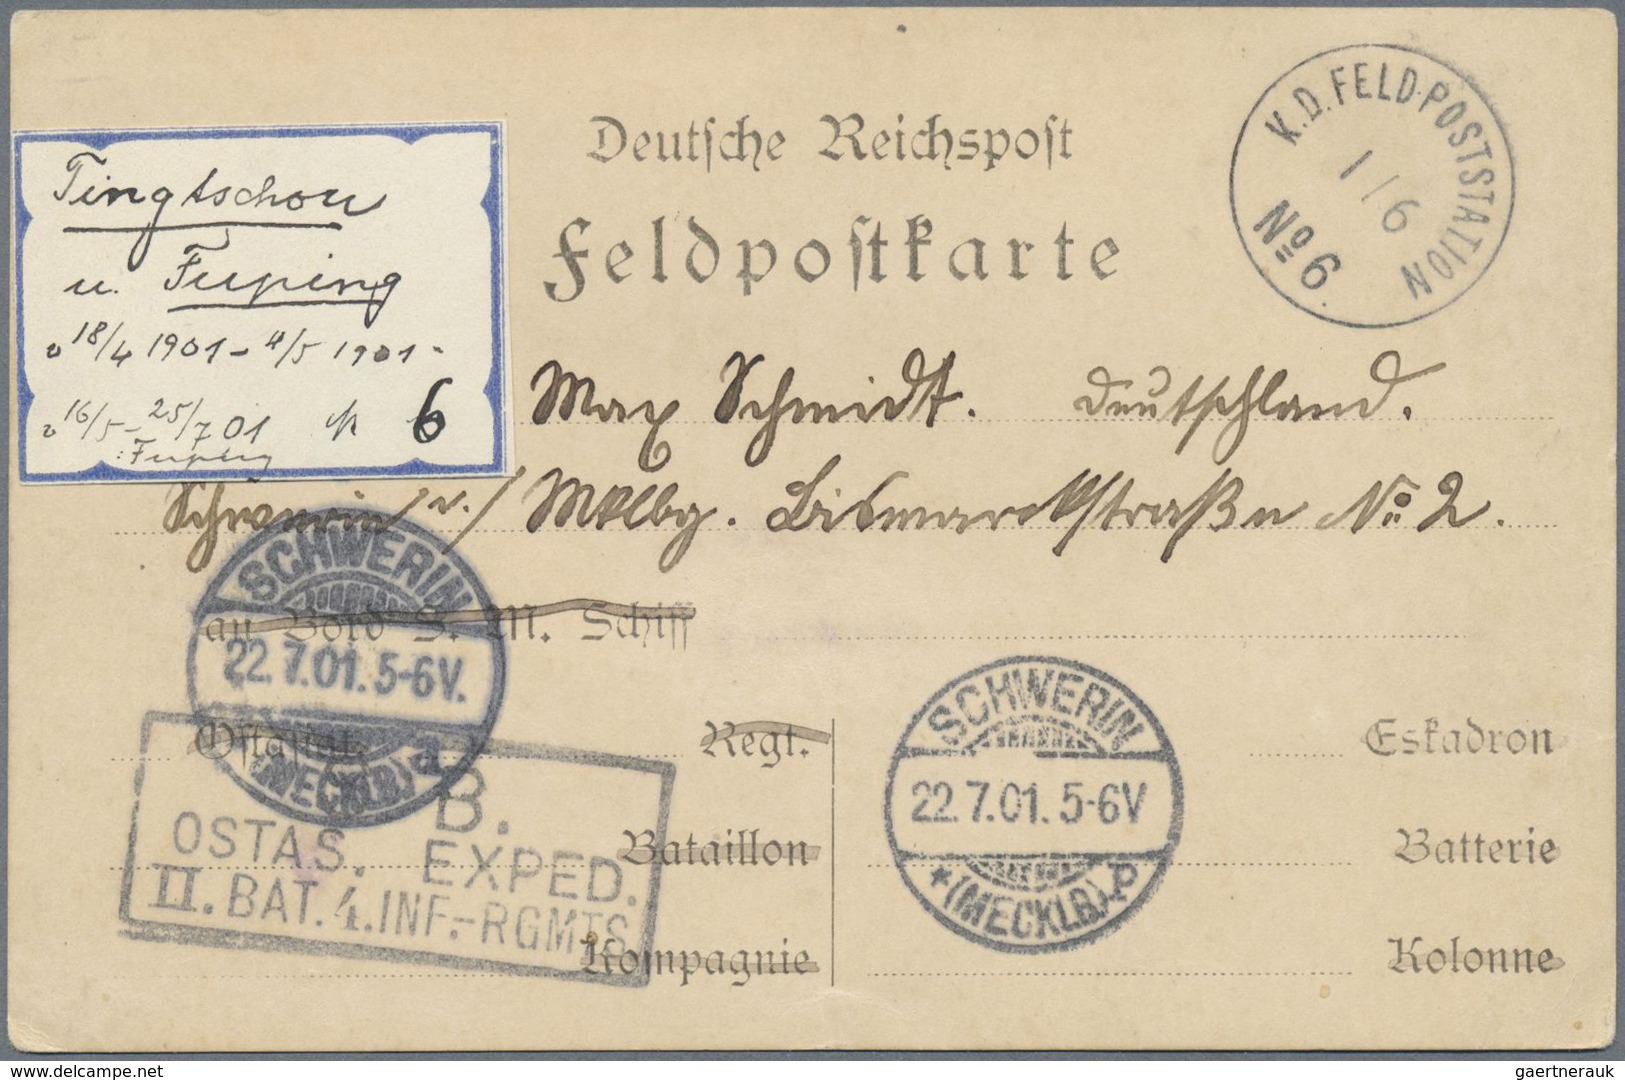 K.D. FELD-POSTSTATION
1/6
No 6.
Deutsche Reichspost
Feldpostkarte
Tingtschou
u. Fuping
v 18/4 1901 - 4/5 1901 -
v 16/5 - 25/7 01 6
: Fuping
Max Schmidt. Deutschland.
Schwerin i./ Mklbg. Bismarckstraße No 2.
SCHWERIN
22.7.01.5-6V.
(MECKLB) a
an Bord S. M. Schiff
Ostasiat. Regt. Eskadron
Bataillon Batterie
Kompagnie Kolonne
B.
OSTAS. EXPED.
II. BAT. 4. INF.-RGMTS
SCHWERIN
22.7.01.5-6V
*(MECKLB).P
delcampe.net
gaertnerauk